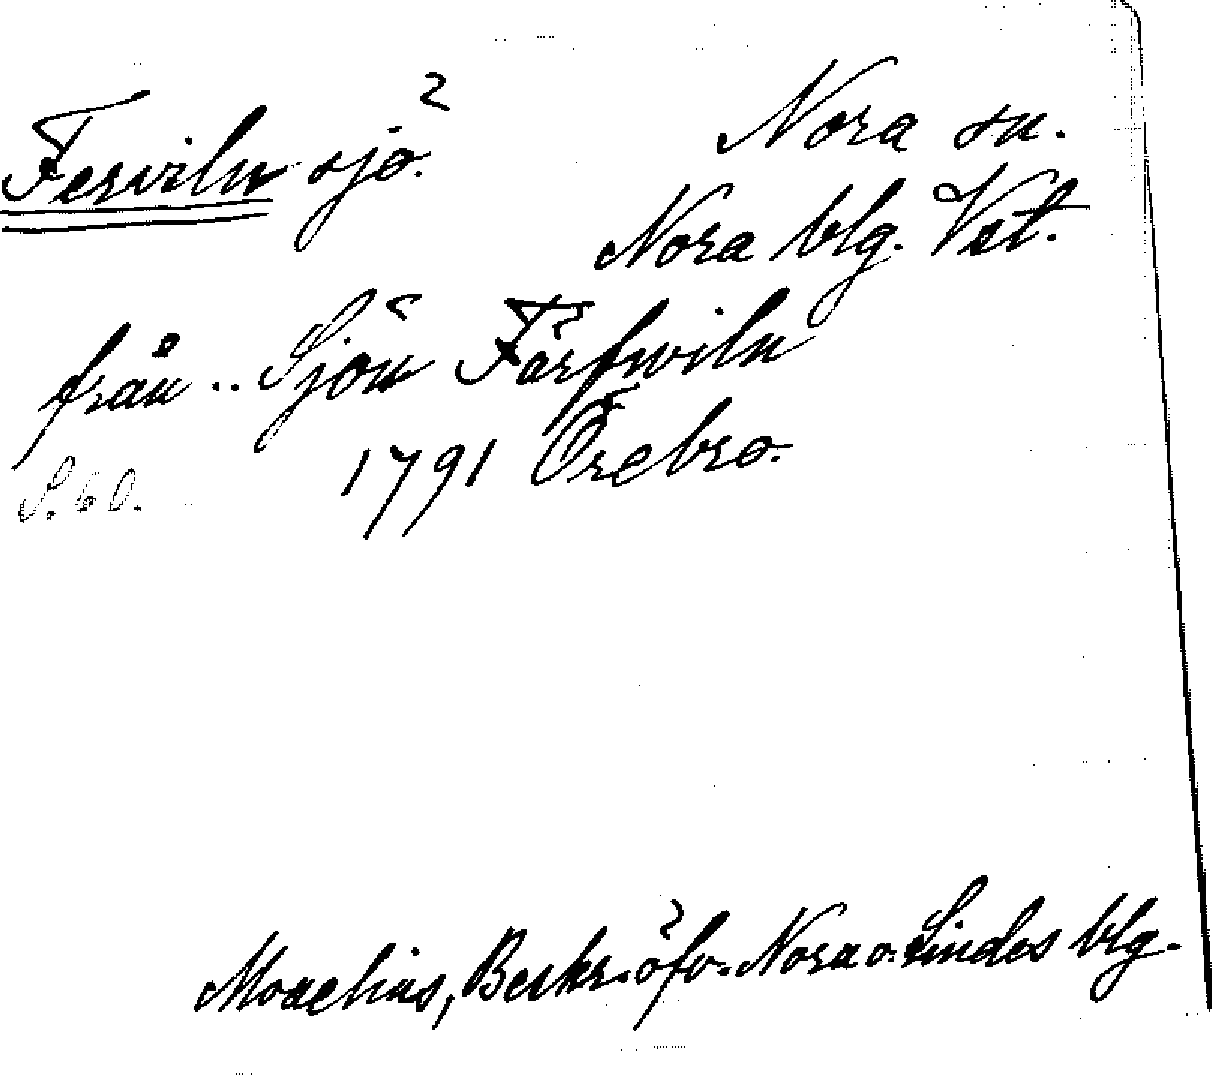 Fersviln sjö. Nora sn.
Nora blg. Vst.
från .. Sjön Färfwiln
S. 60. 1791 Örebro.
Moœchius, Beskr. öfv. Nora o. Lindes blg.